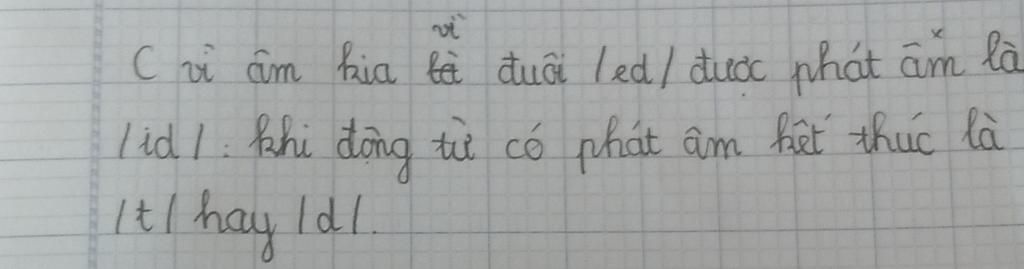 C vì âm kia vì đuôi /ed/ được phát âm là
/id/: khi động từ có phát âm kết thúc là
/t/ hay /d/.